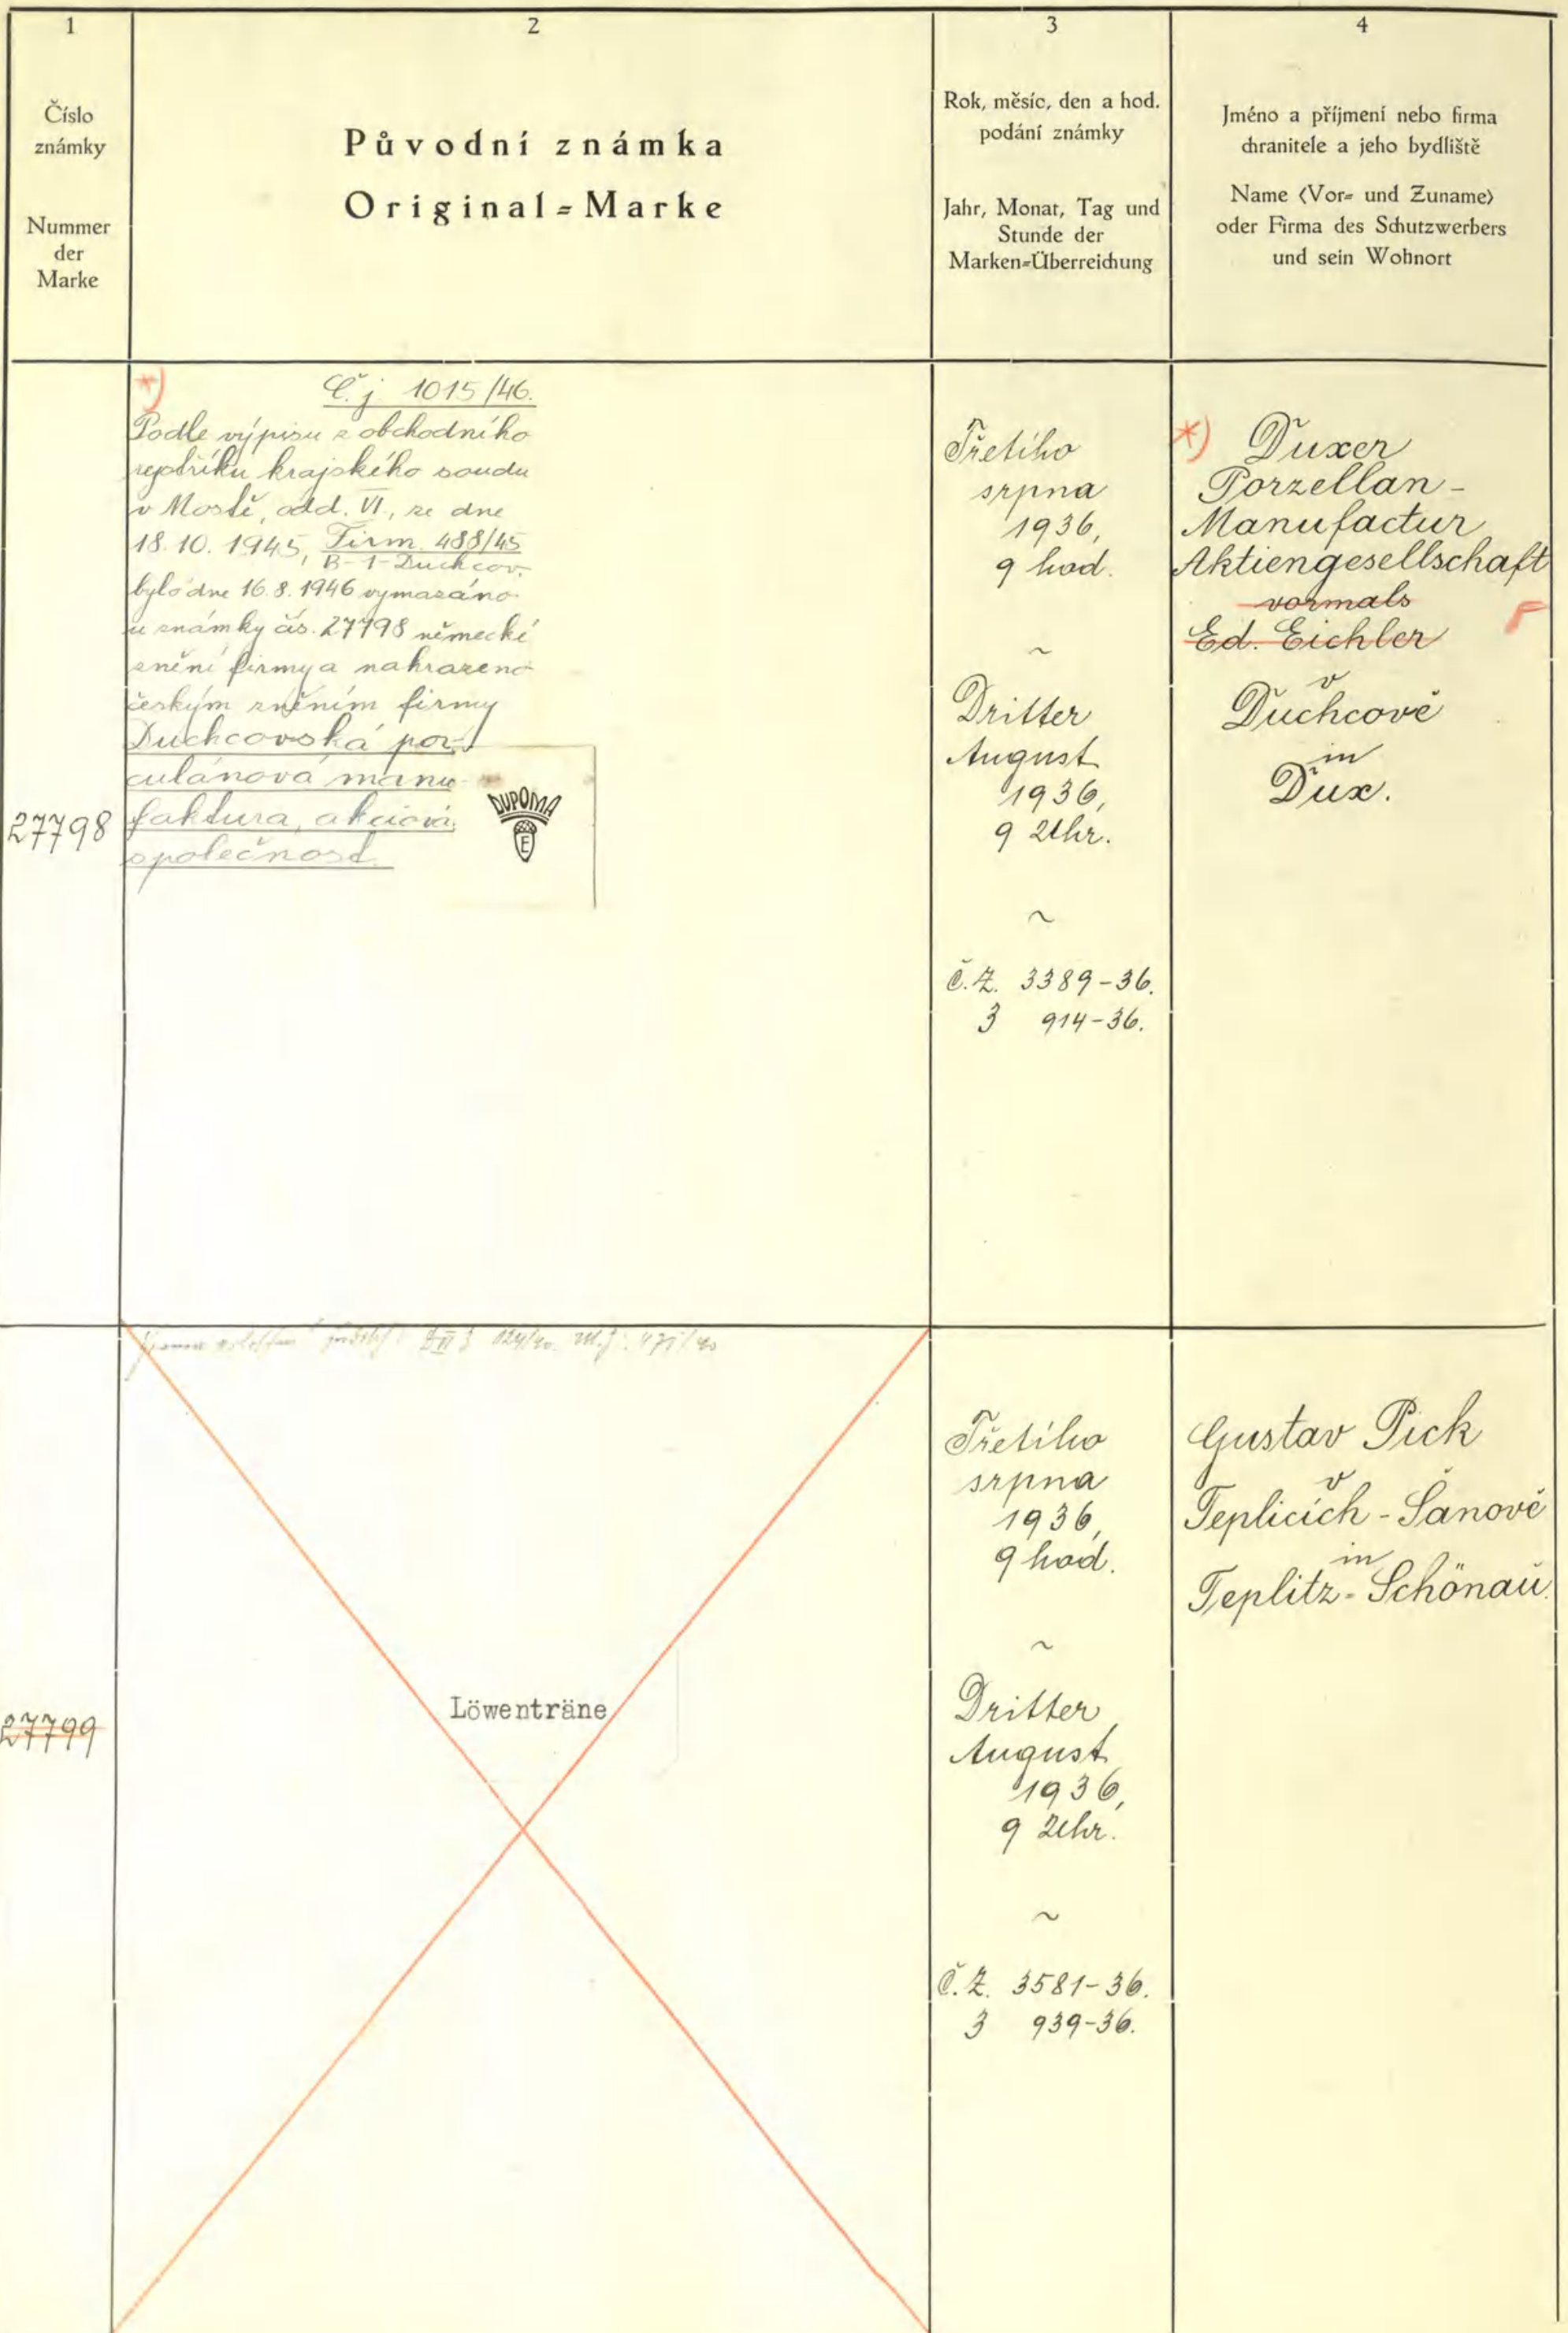 1
Číslo
známky
Nummer
der
Marke
2
Původní známka
Original=Marke
3
Rok, měsíc, den a hod.
podání známky
Jahr, Monat, Tag und
Stunde der
Marken=Überreichung
4
Jméno a příjmení nebo firma
chranitele a jeho bydliště
Name (Vor= und Zuname)
oder Firma des Schutzwerbers
und sein Wohnort
27798
*)
Č.j. 1015/46.
Podle výpisu z obchodního
rejstříku krajského soudu
v Mostě, odd. VI., ze dne
18.10.1945, Firm. 488/45
B-1-Duchcov.
bylo dne 16.8.1946 vymazáno
u známky čís. 27798 německé
znění firmy a nahrazeno
českým zněním firmy
Duchcovská por-
culánová manu-
faktura, akciová
společnost.
DUPOMA
E
Třetího
srpna
1936,
9 hod.
~
Dritter
August
1936,
9 Uhr.
~
Č.Z. 3389-36.
3 914-36.
*) Duxer
Porzellan-
Manufactur
Aktiengesellschaft
vormals
Ed. Eichler
v
Duchcově
in
Dux.
27799
124/40 471/40
Löwenträne
Třetího
srpna
1936,
9 hod.
~
Dritter
August
1936,
9 Uhr.
~
Č.Z. 3581-36.
3 939-36.
Gustav Pick
v
Teplicích-Šanově
in
Teplitz-Schönau.